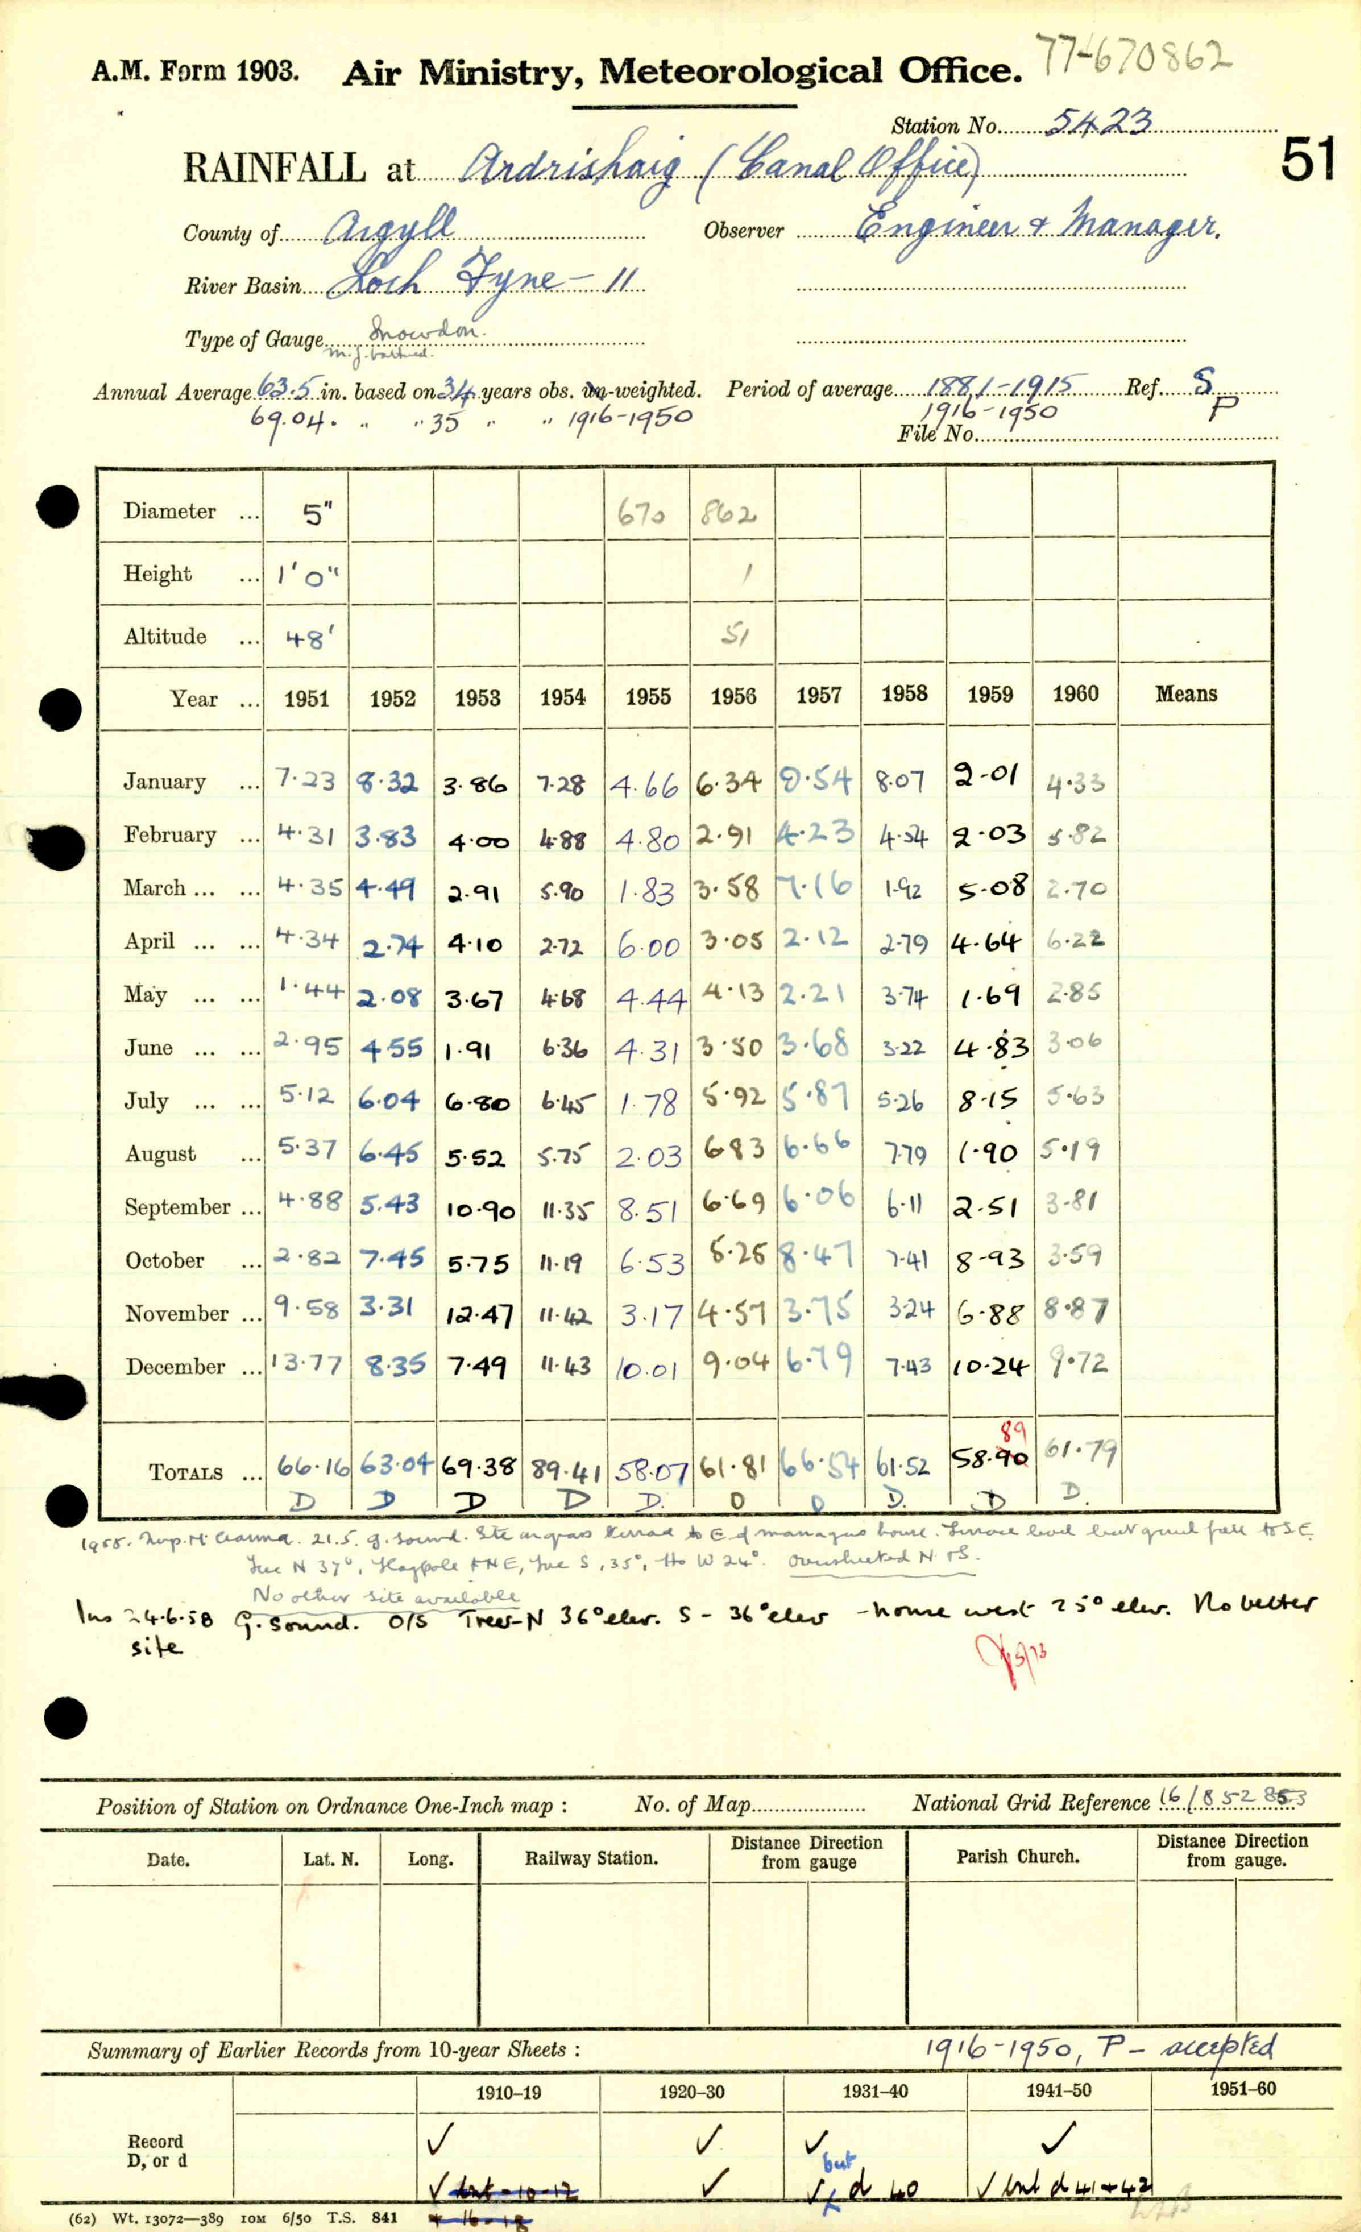 A.M. Form 1903. Air Ministry, Meteorological Office. 77-670862
Station No. 5423
51
RAINFALL at Ardrishaig (Canal Office)
County of Argyll Observer Engineer & Manager.
River Basin Loch Fyne - 11
Type of Gauge Snowdon.
Annual Average 63.5 in. based on 34 years obs. un-weighted. Period of average 1881-1915 Ref. S
69.04. " " 35 " " 1916-1950 1916-1950 P
File No.
Diameter ... 5" 670 862
Height ... 1' 0" 1
Altitude ... 48' 51
Year ... 1951 1952 1953 1954 1955 1956 1957 1958 1959 1960 Means
January ... 7.23 8.32 3.86 7.28 4.66 6.34 9.54 8.07 2.01 4.33
February ... 4.31 3.83 4.00 4.88 4.80 2.91 4.23 4.54 2.03 5.82
March ... ... 4.35 4.49 2.91 5.90 1.83 3.58 7.16 1.92 5.08 2.70
April ... ... 4.34 2.74 4.10 2.72 6.00 3.05 2.12 2.79 4.64 6.22
May ... ... 1.44 2.08 3.67 4.68 4.44 4.13 2.21 3.74 1.69 2.85
June ... ... 2.95 4.55 1.91 6.36 4.31 3.50 3.68 3.22 4.83 3.06
July ... ... 5.12 6.04 6.80 6.45 1.78 5.92 5.87 5.26 8.15 5.63
August ... 5.37 6.45 5.52 5.75 2.03 6.83 6.66 7.79 1.90 5.19
September ... 4.88 5.43 10.90 11.35 8.51 6.69 6.06 6.11 2.51 3.81
October ... 2.82 7.45 5.75 11.19 6.53 5.25 8.47 7.41 8.93 3.59
November ... 9.58 3.31 12.47 11.42 3.17 4.57 3.75 3.24 6.88 8.87
December ... 13.77 8.35 7.49 11.43 10.01 9.04 6.79 7.43 10.24 9.72
89
TOTALS ... 66.16 63.04 69.38 89.41 58.07 61.81 66.54 61.52 58.90 61.79
D D D D D. D D D. D D.
1955. 21.5. g. sound. Site on grass terrace to E of managers house. Terrace level but ground falls to S.E.
Tree N 37°, Flagpole ENE, Tree S, 35°, Ho W 24°. Oversheltered N & S.
No other site available
Ins 24.6.58 G. Sound. O/S Trees-N 36° elev. S - 36° elev - house west 25° elev. No better
site
Position of Station on Ordnance One-Inch map : No. of Map National Grid Reference 16/852853
Date. Lat. N. Long. Railway Station. Distance Direction from gauge Parish Church. Distance Direction from gauge.
Summary of Earlier Records from 10-year Sheets : 1916-1950, P - accepted
1910-19 1920-30 1931-40 1941-50 1951-60
Record ✓ ✓ ✓ ✓
D, or d but
✓ but - 10-12 ✓ ✓ d 40 ✓ but d 41+42
+ 16-18
(62) Wt. 13072—389 10M 6/50 T.S. 841